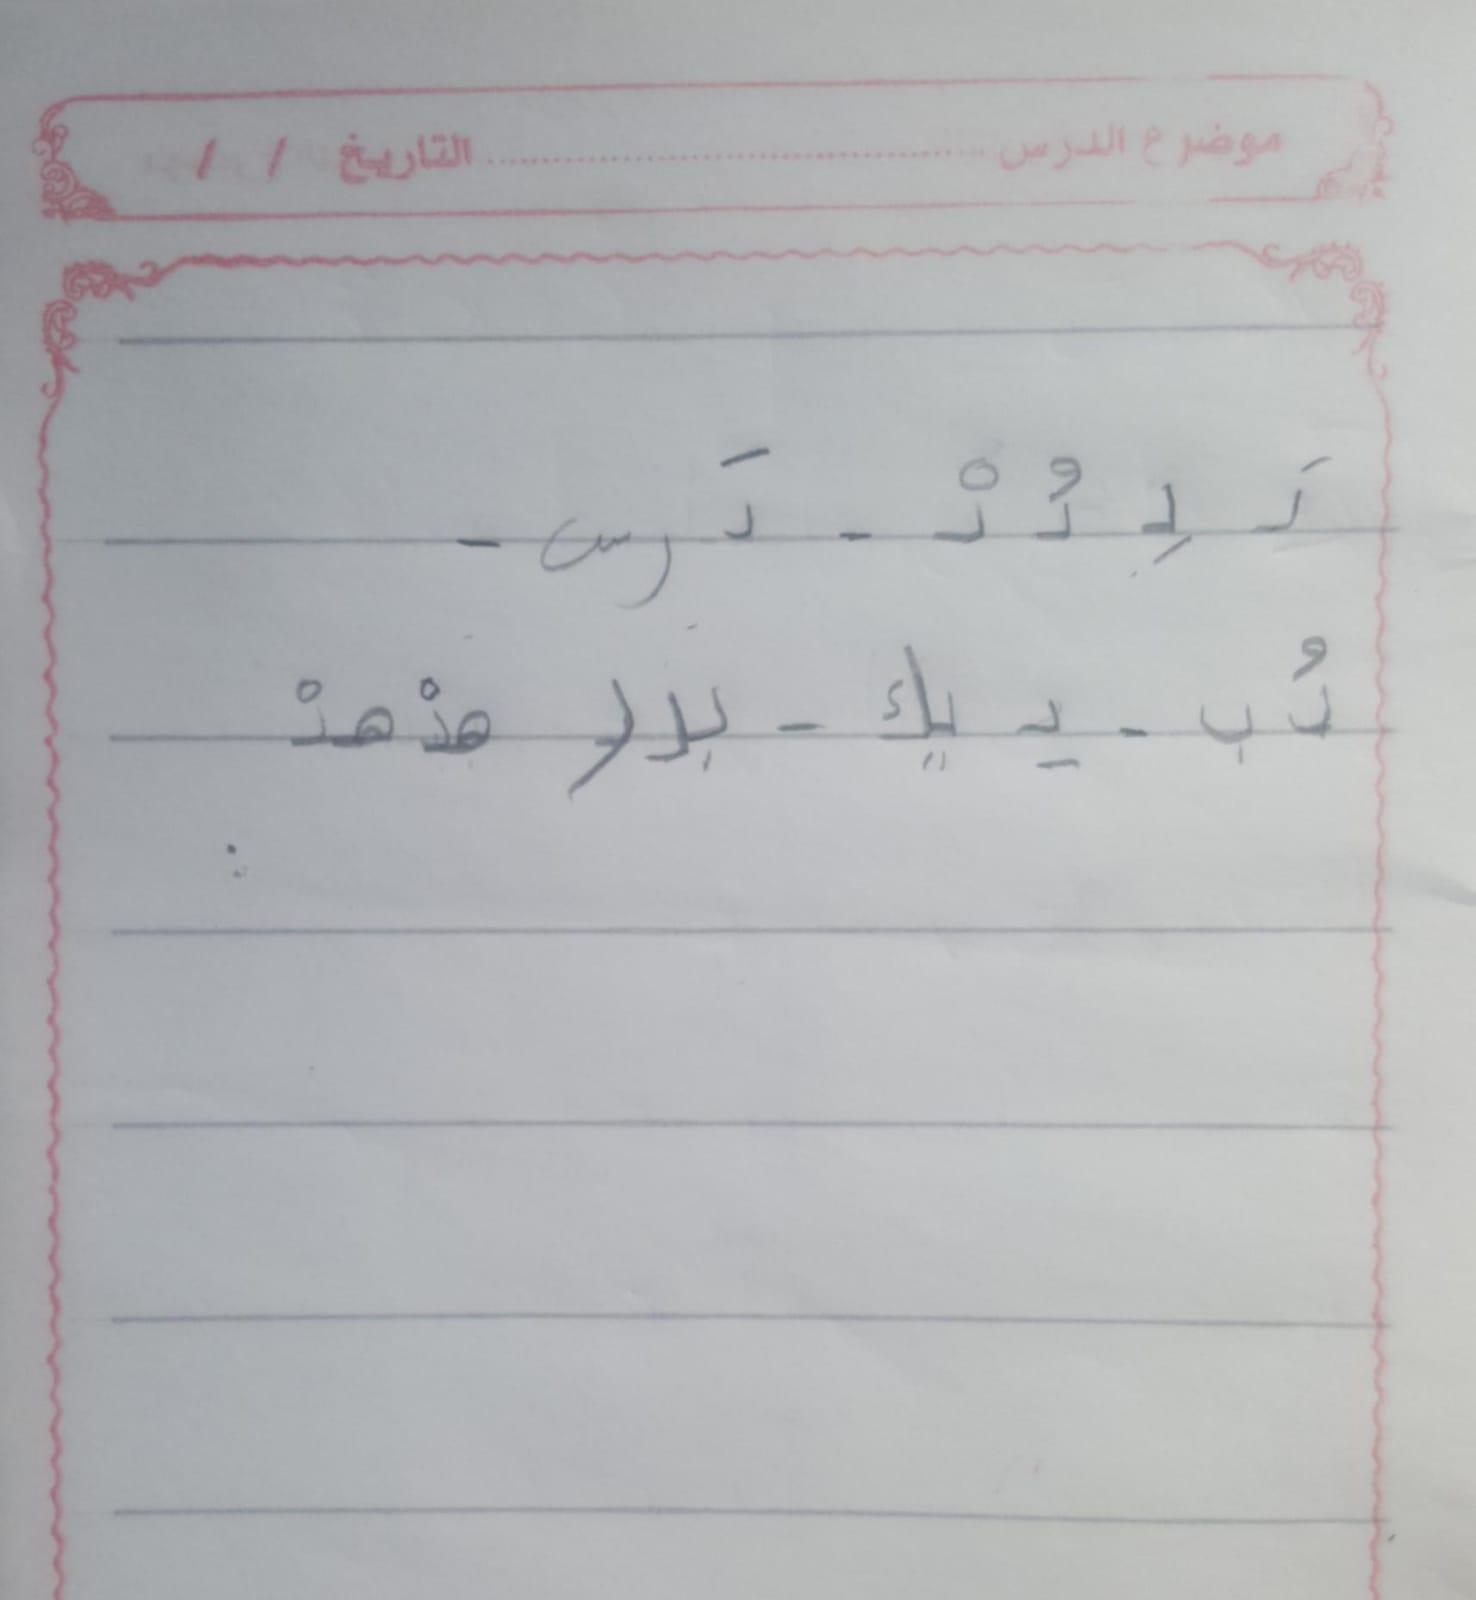 موضوع الدرس .................... التاريخ / /
دَ دِ دُ دْ - دَرس -
دُب - دِ يك - بدر هدْهدْ